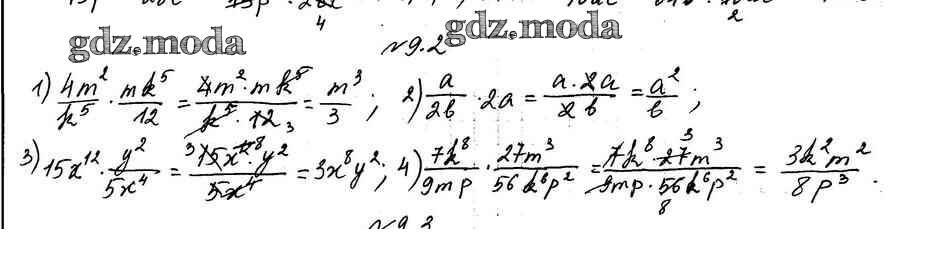 gdz.moda gdz.moda
№9.2
1) 4m²/k⁵ · mk⁵/12 = 4m²·mk⁵/k⁵·12 3 = m³/3 ; 2) a/2b · 2a = a·2a/2b = a²/b ;
3) 15x¹² · y²/5x⁴ = 3 15x¹² 8·y²/5x⁴ = 3x⁸y² ; 4) 7k⁸/9mp · 27m³/56k⁶p² = 7k⁸·27 3 m³/9mp·56k⁶p² 8 = 3k²m²/8p³ .
№9.3